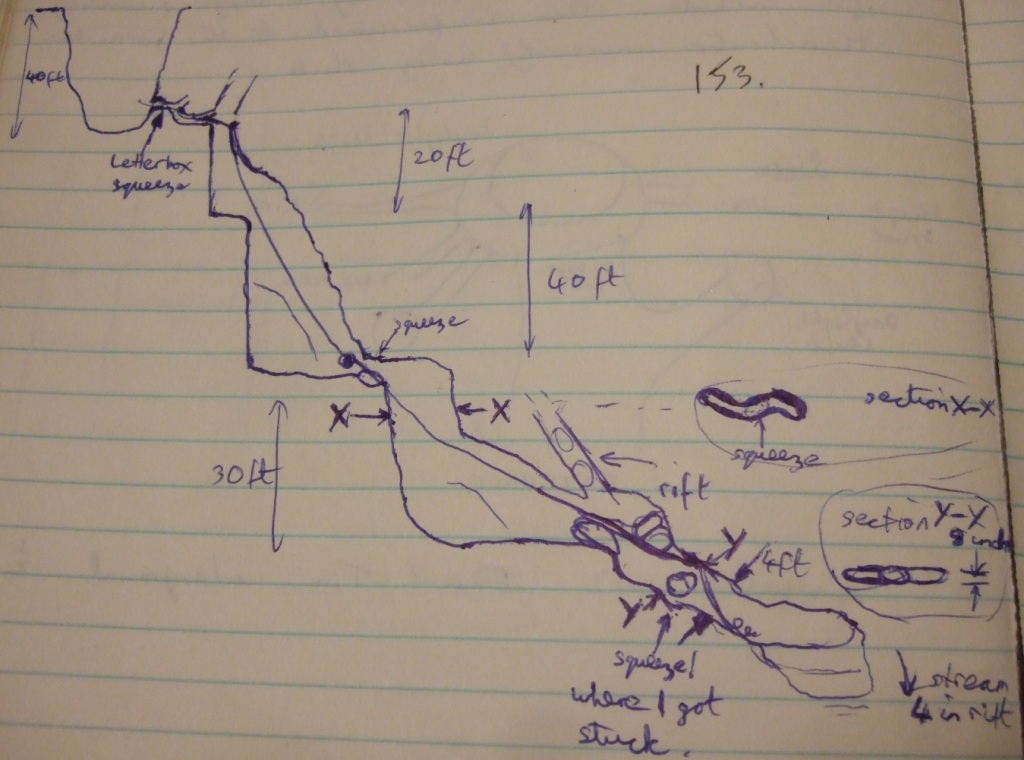 153.
40ft
Letterbox
squeeze
20ft
40ft
squeeze
X
X
section X-X
squeeze
30ft
rift
section Y-Y
8 inch
Y
4ft
Y
squeeze!
where I got
stuck.
stream
in rift